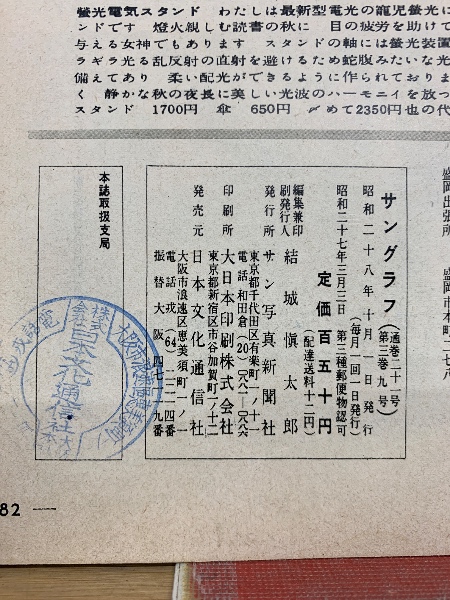 螢光電気スタンド　わたしは最新型電光の寵児螢光に
ンドです　燈火親しむ読書の秋に　目の疲労を助けて
与える女神でもあります　スタンドの軸には螢光装置
ラギラ光る乱反射の直射を避けるため蛇腹みたいな光
備えてあり　柔い配光ができるように作られておりま
く　静かな秋の夜長に美しい光波のハーモニイを放っ
スタンド　1700円　傘　650円　〆めて2350円也の代
盛岡出張所　盛岡市本町
サングラフ（通巻二十一号）
（第三巻九号）
昭和二十八年十月一日発行（毎月一回一日発行）
昭和二十七年三月三日　第三種郵便物認可
定価百五十円（配達送料十二円）
編集兼印
刷発行人　結城愼太郎
発行所　サン写真新聞社
東京都千代田区有楽町一ノ十一
電話和田倉(20)〇八二一―〇八八六
印刷所　大日本印刷株式会社
東京都新宿区市谷加賀町一ノ十二
発売元　日本文化通信社
大阪市浪速区恵美須町一ノ一
電話戎(64)一三二四番
振替大阪四七一一九番
本誌取扱支局
82